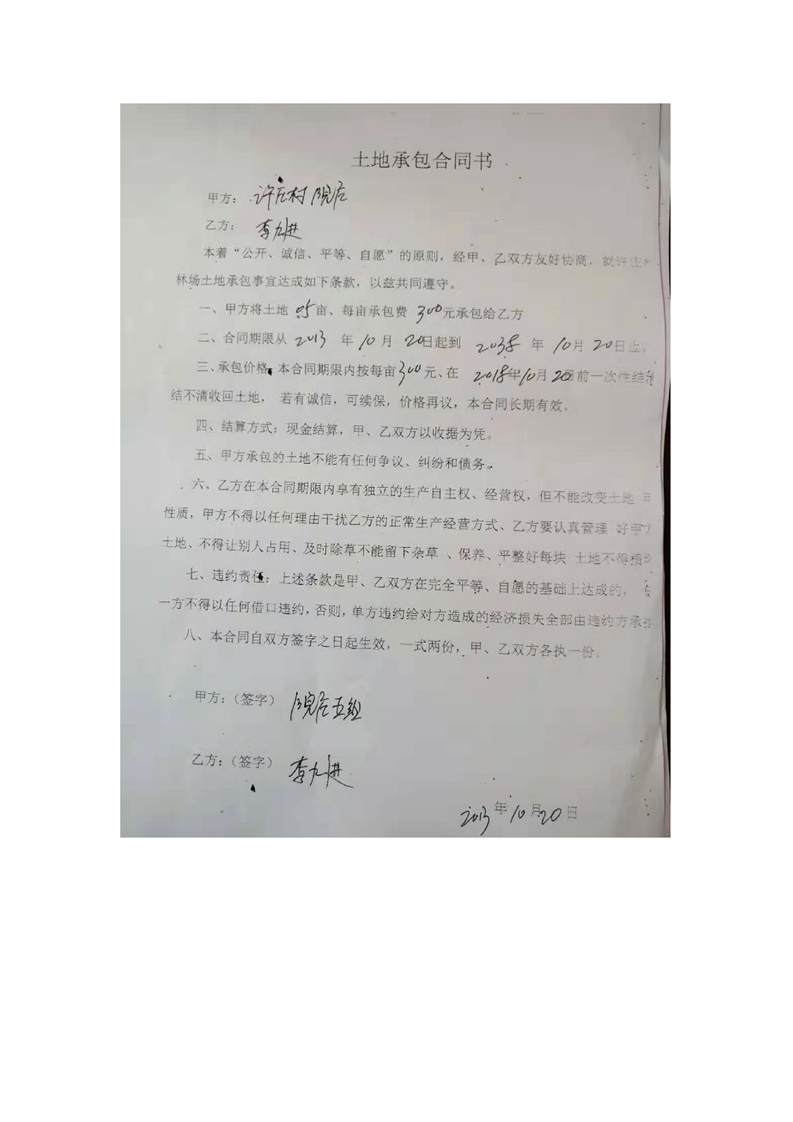 土地承包合同书
甲方：许庄村院后
乙方：李九进
本着“公开、诚信、平等、自愿”的原则，经甲、乙双方友好协商，就许庄
林场土地承包事宜达成如下条款，以兹共同遵守。
一、甲方将土地 亩、每亩承包费 300元承包给乙方
二、合同期限从 2013 年 10 月 20日起到 2038 年 10 月 20日止。
三、承包价格：本合同期限内按每亩300元、在 2018年10月20日前一次性结
结不清收回土地， 若有诚信，可续保，价格再议，本合同长期有效。
四、结算方式：现金结算，甲、乙双方以收据为凭。
五、甲方承包的土地不能有任何争议、纠纷和债务。
六、乙方在本合同期限内享有独立的生产自主权、经营权，但不能改变土地
性质，甲方不得以任何理由干扰乙方的正常生产经营方式、乙方要认真管理 好甲方
土地、不得让别人占用、及时除草不能留下杂草 、保养、平整好每块 土地不得损坏
七、违约责任：上述条款是甲、乙双方在完全平等、自愿的基础上达成的，
一方不得以任何借口违约，否则，单方违约给对方造成的经济损失全部由违约方承担
八、本合同自双方签字之日起生效，一式两份，甲、乙双方各执一份。
甲方：（签字） 院后五组
乙方：（签字） 李九进
2013 年 10 月 20 日